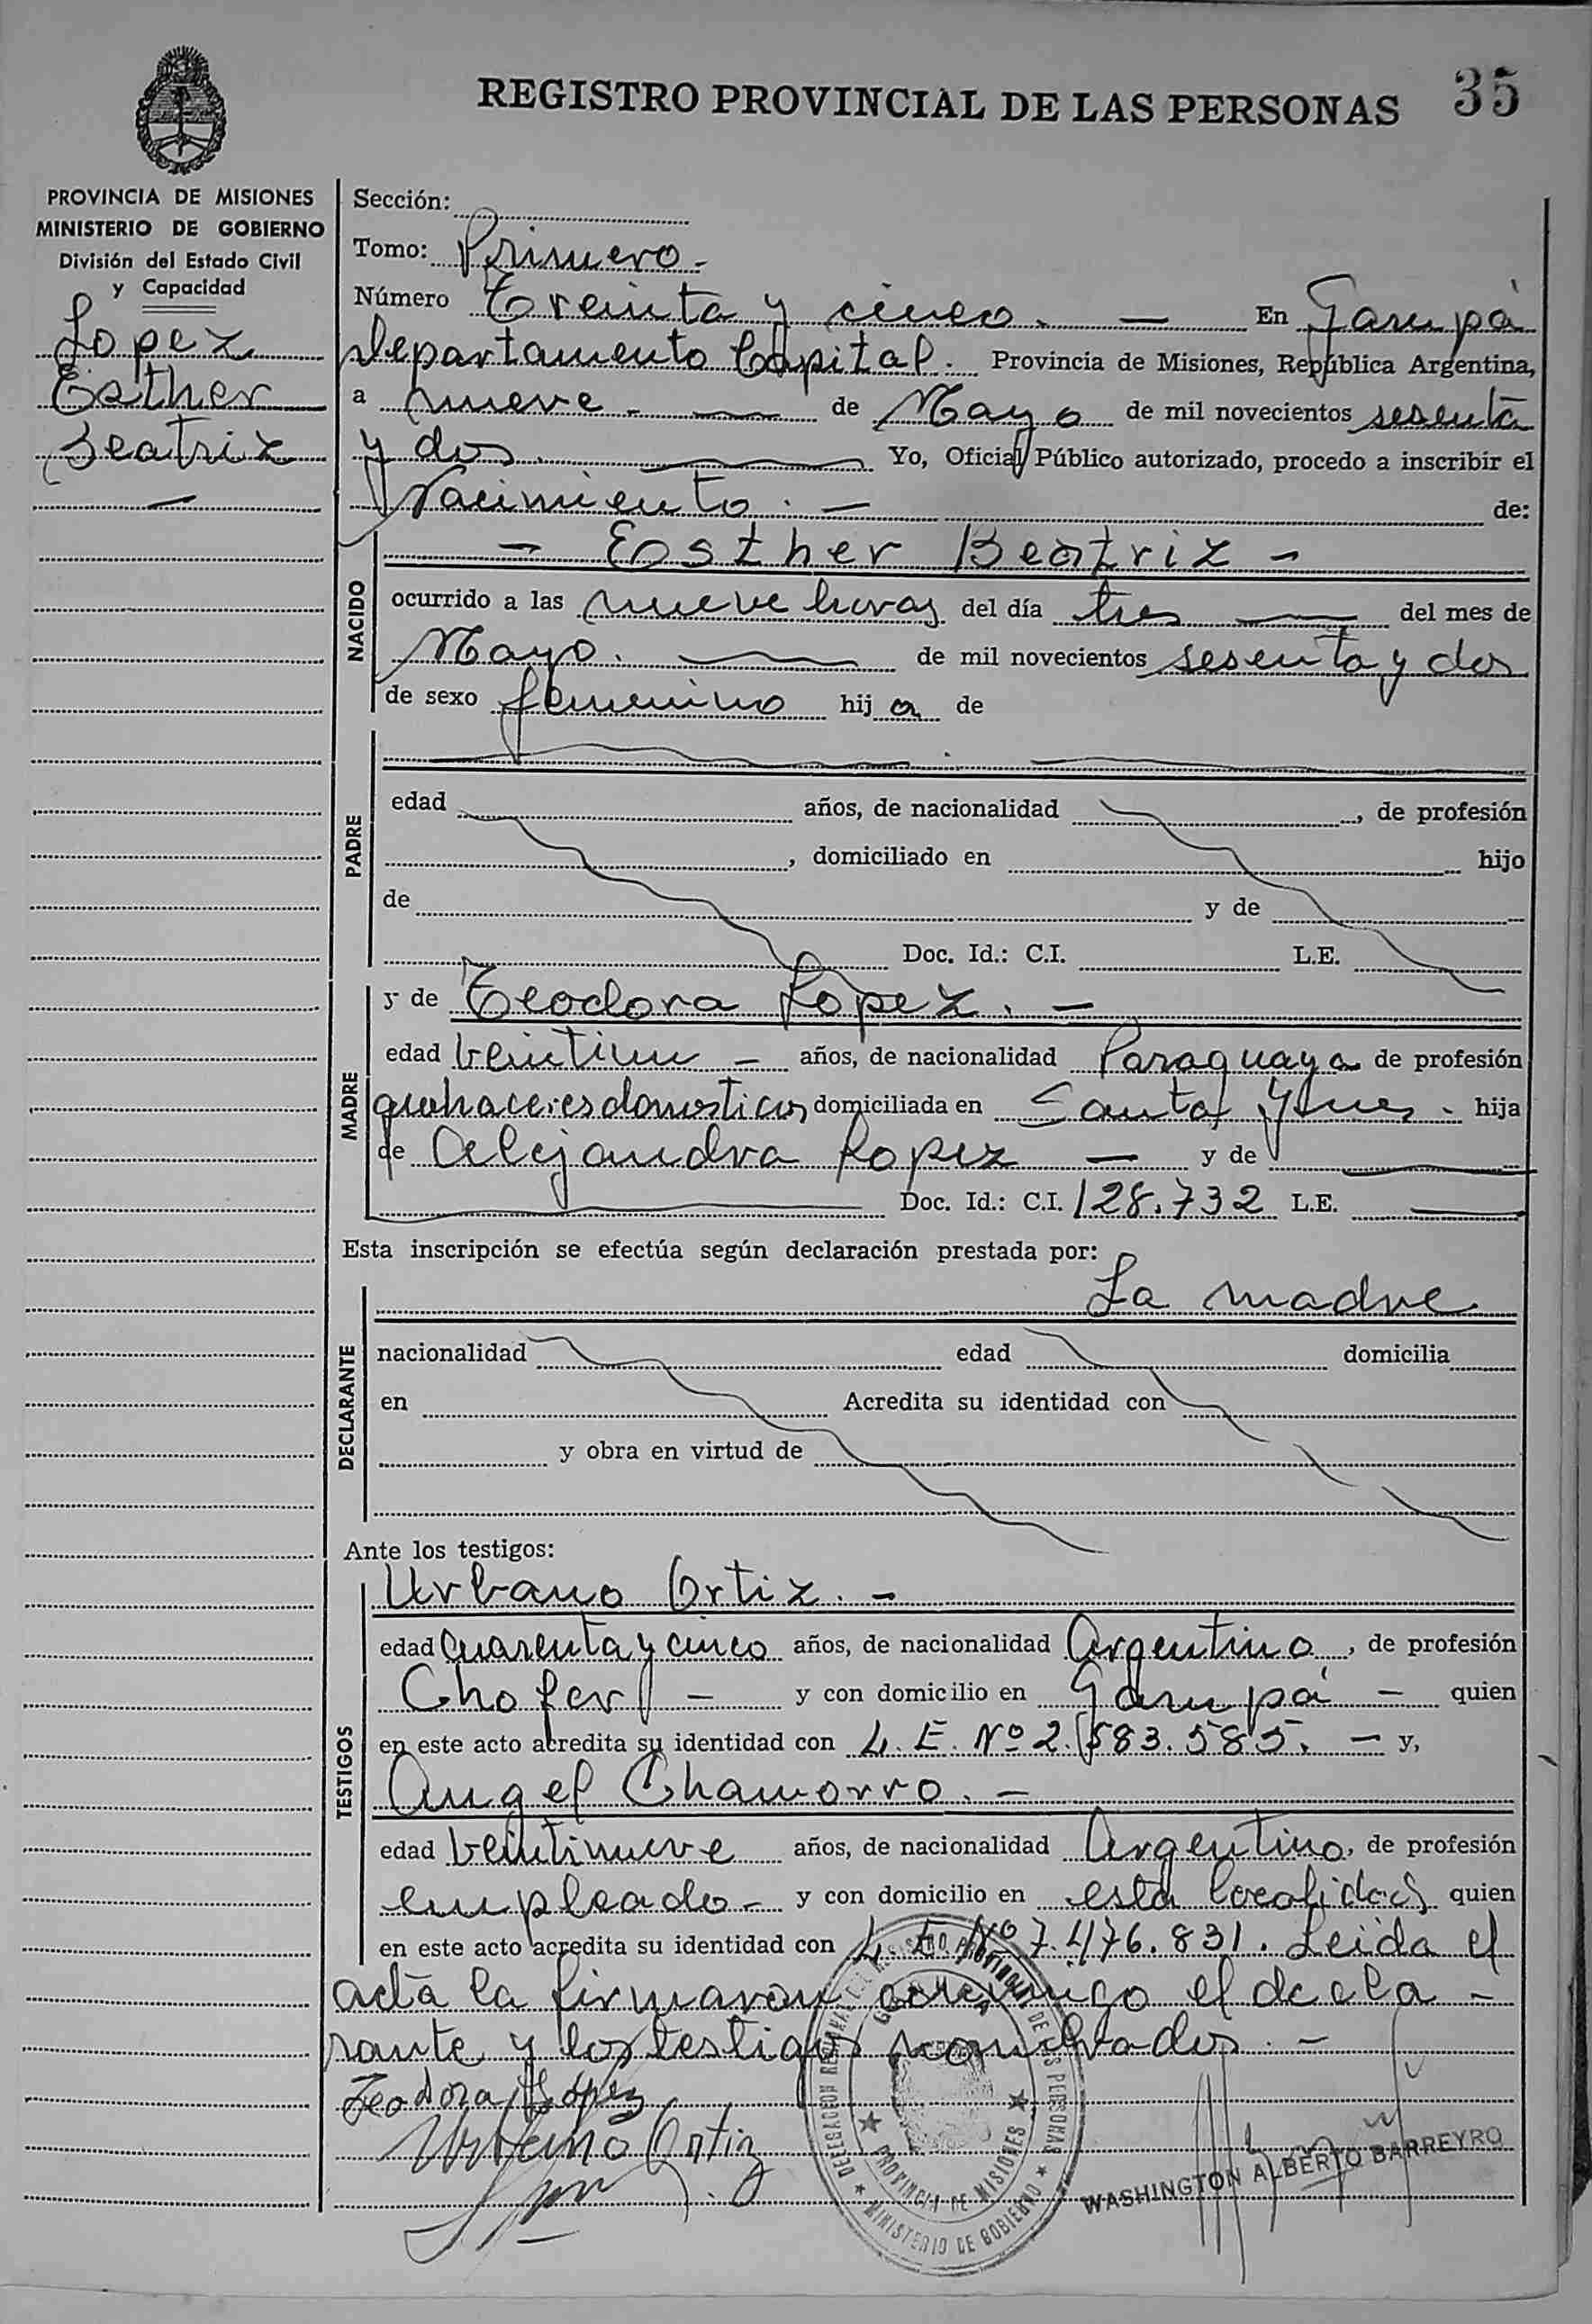 REGISTRO PROVINCIAL DE LAS PERSONAS 35
PROVINCIA DE MISIONES
MINISTERIO DE GOBIERNO
División del Estado Civil
y Capacidad
Lopez
Esther
Beatriz
Sección:
Tomo: Primero.-
Número Treinta y cinco. — En Garupá
departamento Capital. Provincia de Misiones, República Argentina,
a nueve - — de Mayo de mil novecientos sesenta
y dos. — Yo, Oficial Público autorizado, procedo a inscribir el
Nacimiento. — de:
NACIDO
- Esther Beatriz -
ocurrido a las nueve horas del día tres — del mes de
Mayo. — de mil novecientos sesenta y dos
de sexo femenino hija de
PADRE
edad años, de nacionalidad , de profesión
, domiciliado en hijo
de y de
Doc. Id.: C.I. L.E.
MADRE
y de Teodora Lopez. —
edad veintiun — años, de nacionalidad Paraguaya de profesión
quehaceres domesticos domiciliada en Santa Ynes. hija
de Alejandra Lopez — y de —
Doc. Id.: C.I. 128.732 L.E. —
Esta inscripción se efectúa según declaración prestada por:
DECLARANTE
La madre
nacionalidad edad domicilia
en Acredita su identidad con
y obra en virtud de
Ante los testigos:
TESTIGOS
Urbano Ortiz. —
edad cuarenta y cinco años, de nacionalidad Argentino, de profesión
Chofer — y con domicilio en Garupá — quien
en este acto acredita su identidad con L. E. Nº 2.583.585. — y,
Angel Chamorro. —
edad veintinueve años, de nacionalidad Argentino, de profesión
empleado - y con domicilio en esta localidad quien
en este acto acredita su identidad con L. E. Nº 7.476.831. Leida el
acta la firmaron conmigo el decla -
rante y los testigos nombrados. —
Teodora Lópéz
Urbano Ortiz
WASHINGTON ALBERTO BARREYRO
DE LAS PERSONAS
PROVINCIA DE MISIONES
MINISTERIO DE GOBIERNO